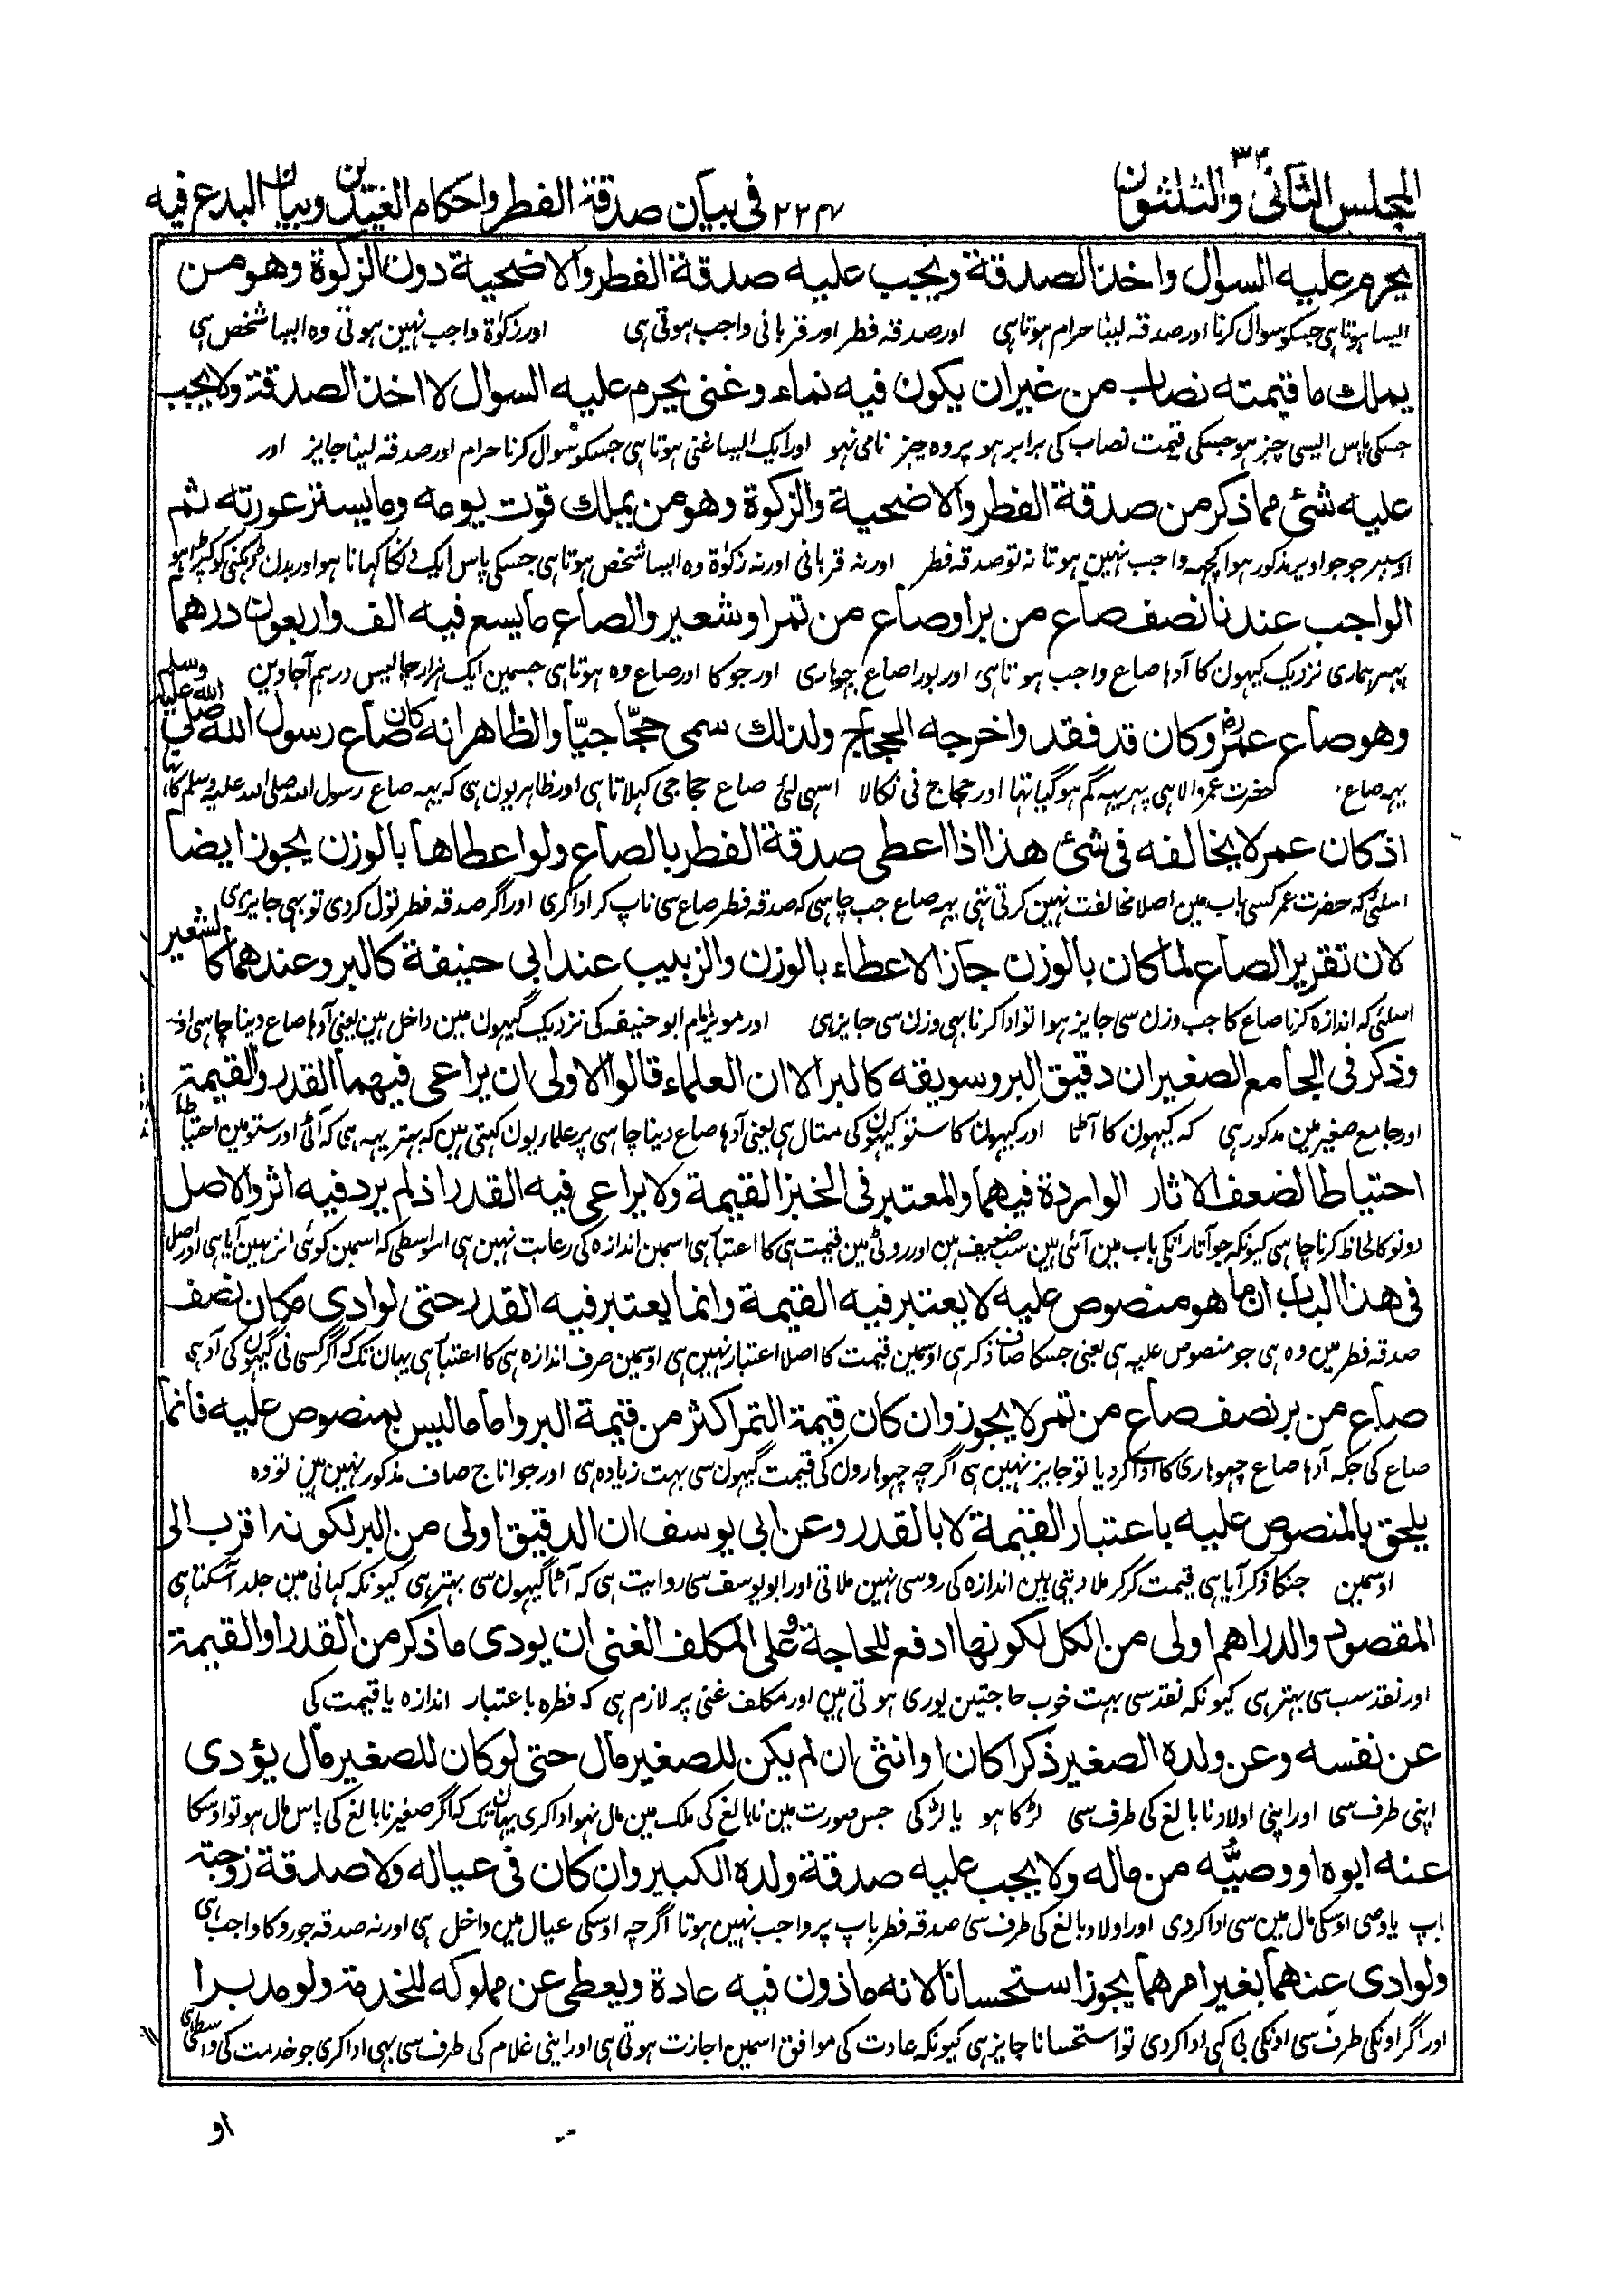 المجلس الثانی والثلثون ۳۲
۲۲۴ فی بیان صدقة الفطر واحکام العیدین وبیان البدع فیه
یحرم علیه السوال واخذ الصدقة ویجب علیه صدقة الفطر والاضحیة دون الزکوة وهو من
ایسا ہوتا ہی جسکو سوال کرنا اور صدقہ لینا حرام ہوتا ہی اور صدقہ فطر اور قربانی واجب ہوتی ہی اور زکوٰۃ واجب نہین ہوتی وہ ایسا شخص ہی
یملك ما قیمته نصاب من غیر ان یکون فیه نماء وغنی یحرم علیه السوال لا اخذ الصدقة ولا یجب
جسکی پاس ایسی چیز ہو جسکی قیمت نصاب کی برابر ہو پر وہ چیز نامی نہو اور ایک ایسا غنی ہوتا ہی جسکو سوال کرنا حرام اور صدقہ لینا جایز اور
علیه شئ مما ذکر من صدقة الفطر والاضحیة والزکوة وهو من یملك قوت یومه وما یستر عورته ثم
اوسپر جو جو اوپر مذکور ہوا کچہہ واجب نہین ہوتا نہ تو صدقہ فطر اور نہ قربانی اور نہ زکوٰۃ وہ ایسا شخص ہوتا ہی جسکی پاس ایک دنکا کہانا ہو اور بدن ڈہکنی کو کپڑا ہو
الواجب عندنا نصف صاع من بر او صاع من تمر او شعیر والصاع ما یسع فیه الف واربعون درهما
پہر ہماری نزدیک گیہون کا آدہا صاع واجب ہوتا ہی اور پورا صاع چہواری اور جو کا اور صاع وہ ہوتا ہی جسمین ایک ہزار چالیس درہم آجاوین
وهو صاع عمرؓ وکان قد فقد واخرجه الحجاج ولذلك سمی حجّاجیّا والظاهر انه کان صاع رسول الله صلی الله علیه وسلم
یہہ صاع حضرت عمر والا ہی پہر یہہ گم ہو گیا تہا اور حجاج نی نکالا اسہی لئی صاع حجاجی کہلاتا ہی اور ظاہر یون ہی کہ یہہ صاع رسول اللہ صلی اللہ علیہ وسلم کا تہا
اذ کان عمر لا یخالفه فی شئ هذا اذا اعطی صدقة الفطر بالصاع ولو اعطاها بالوزن یجوز ایضا
اسلئی کہ حضرت عمر کسی باب مین اصلا مخالفت نہین کرتی تہی یہہ صاع جب چاہی کہ صدقہ فطر صاع سی ناپ کر ادا کری اور اگر صدقہ فطر تول کر دی تو بہی جایز ہی
لان تقریر الصاع لما کان بالوزن جاز الاعطاء بالوزن والزبیب عند ابی حنیفة کالبر وعندهما کالشعیر
اسلئی کہ اندازہ کرنا صاع کا جب وزن سی جایز ہوا تو ادا کرنا بہی وزن سی جایز ہی اور مویز امام ابو حنیفہ کی نزدیک گیہون مین داخل ہین یعنی آدہا صاع دینا چاہی اور
وذکر فی الجامع الصغیر ان دقیق البر وسویقه کالبر الا ان العلماء قالوا الاولی ان یراعی فیهما القدر والقیمة
اور جامع صغیر مین مذکور ہی کہ گیہون کا آٹا اور گیہون کا ستو گیہون کی مثال ہی یعنی آدہا صاع دینا چاہی پر علماء یون کہتی ہین کہ بہتر یہہ ہی کہ آٹی اور ستو مین احتیاطا
احتیاطا لضعف الاثار الواردة فیهما والمعتبر فی الخبز القیمة ولا یراعی فیه القدر اذ لم یرد فیه اثر والاصل
دونو کا لحاظ کرنا چاہی کیونکہ جو آثار انکی باب مین آئی ہین سب ضعیف ہین اور روٹی مین قیمت ہی کا اعتبار ہی اسمین اندازہ کی رعایت نہین ہی اسواسطی کہ اسمین کوئی اثر نہین آیا ہی اور اصل
فی هذا الباب ان ما هو منصوص علیه لا یعتبر فیه القیمة وانما یعتبر فیه القدر حتی لو ادی مکان نصف
صدقہ فطر مین وہ ہی جو منصوص علیہ ہی یعنی جسکا صاف ذکر ہی اوسمین قیمت کا اصلا اعتبار نہین ہی اوسمین صرف اندازہ ہی کا اعتبار ہی یہان تک کہ اگر کسی نی گیہون کی آدہی
صاع من بر نصف صاع من تمر لا یجوز وان کان قیمة التمر اکثر من قیمة البر واما ما لیس بمنصوص علیه فانما
صاع کی جگہ آدہا صاع چہواری کا ادا کردیا تو جایز نہین ہی اگرچہ چہوہارون کی قیمت گیہون سی بہت زیادہ ہی اور جو اناج صاف مذکور نہین ہین تو وہ
یلحق بالمنصوص علیه باعتبار القیمة لا بالقدر وعن ابی یوسف ان الدقیق اولی من البر لکونه اقرب الی
اوسمین جنکا ذکر آیا ہی قیمت کر کر ملا دیتی ہین اندازہ کی روسی نہین ملاتی اور ابو یوسف سی روایت ہی کہ آٹا گیہون سی بہتر ہی کیونکہ کہانی مین جلد آسکتا ہی
المقصود والدراهم اولی من الکل لکونها ادفع للحاجة وعلی المکلف الغنی ان یودی ما ذکر من القدر او القیمة
اور نقد سب سی بہتر ہی کیونکہ نقد سی بہت خوب حاجتین پوری ہوتی ہین اور مکلف غنی پر لازم ہی کہ فطرہ باعتبار اندازہ یا قیمت کی
عن نفسه وعن ولده الصغیر ذکرا کان او انثی ان لم یکن للصغیر مال حتی لو کان للصغیر مال یؤدی
اپنی طرف سی اور اپنی اولاد نا بالغ کی طرف سی لڑکا ہو یا لڑکی جس صورت مین نابالغ کی ملک مین مال نہو ادا کری یہان تک کہ اگر صغیر نابالغ کی پاس مال ہو تو اوسکا
عنه ابوه او وصیّه من ماله ولا یجب علیه صدقة ولده الکبیر وان کان فی عیاله ولا صدقة زوجته
باپ یا وصی اوسکی مال مین سی ادا کردی اور اولاد بالغ کی طرف سی صدقہ فطر باپ پر واجب نہین ہوتا اگرچہ اوسکی عیال مین داخل ہی اور نہ صدقہ جورو کا واجب ہی
ولو ادی عنهما بغیر امرهما یجوز استحسانا لانه ماذون فیه عادة ویعطی عن مملوکه للخدمة ولو مدبرا
اور اگر اونکی طرف سی اونکی بی کہی ادا کردی تو استحسانا جایز ہی کیونکہ عادت کی موافق اسمین اجازت ہوتی ہی اور اپنی غلام کی طرف سی بہی ادا کری جو خدمت کی واسطی ہی
او